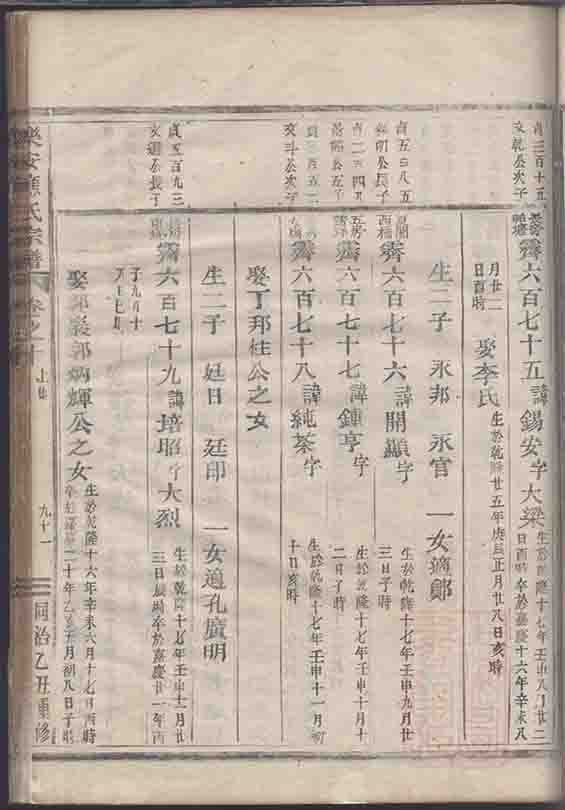 貞三百十五
文乾公次子
霽六百七十五諱錫安字大梁
生於乾隆十七年壬申八月廿二
日酉時卒於嘉慶十六年辛未八
月廿二
日酉時
娶李氏
生於乾隆廿五年庚辰正月廿八日亥時
生二子 永邦 永官 一女適鄭
霽六百七十六諱開顯字
生於乾隆十七年壬申九月廿
三日子時
霽六百七十七諱鍾亨字
生於乾隆十七年壬申十月十
二日子時
霽六百七十八諱純荼字
生於乾隆十七年壬申十一月初
十日亥時
娶丁邦柱公之女
生二子 廷日 廷印 一女適孔廣明
霽六百七十九諱培昭字大烈
生於乾隆十七年壬申十一月廿
三日辰時卒於嘉慶廿一年丙
子九月十
娶郭炳輝公之女
生於乾隆十六年辛未六月十七日酉時
二十年乙亥五月初八日子時
樂安 氏宗譜
卷之十
九十一
同治乙丑重修